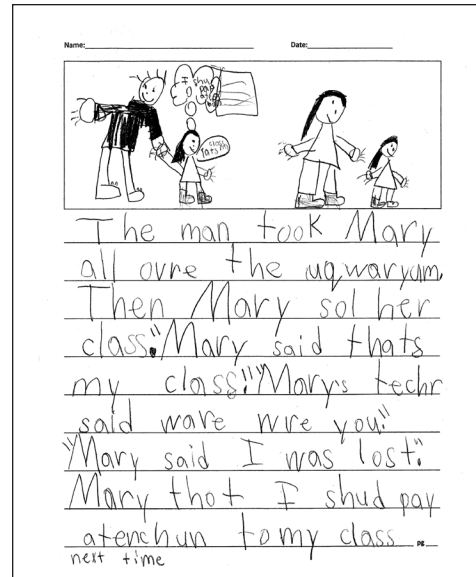 Name: Date:
I shud pay at
class Tatsmy
The man took Mary
all ovre the uqwaryum,
Then Mary sol her
class!"Mary said thats
my class!""Mary's techr
said ware wre you!"
"Mary said I was lost."
Mary thot I shud pay
atenchun to my class pg
next time